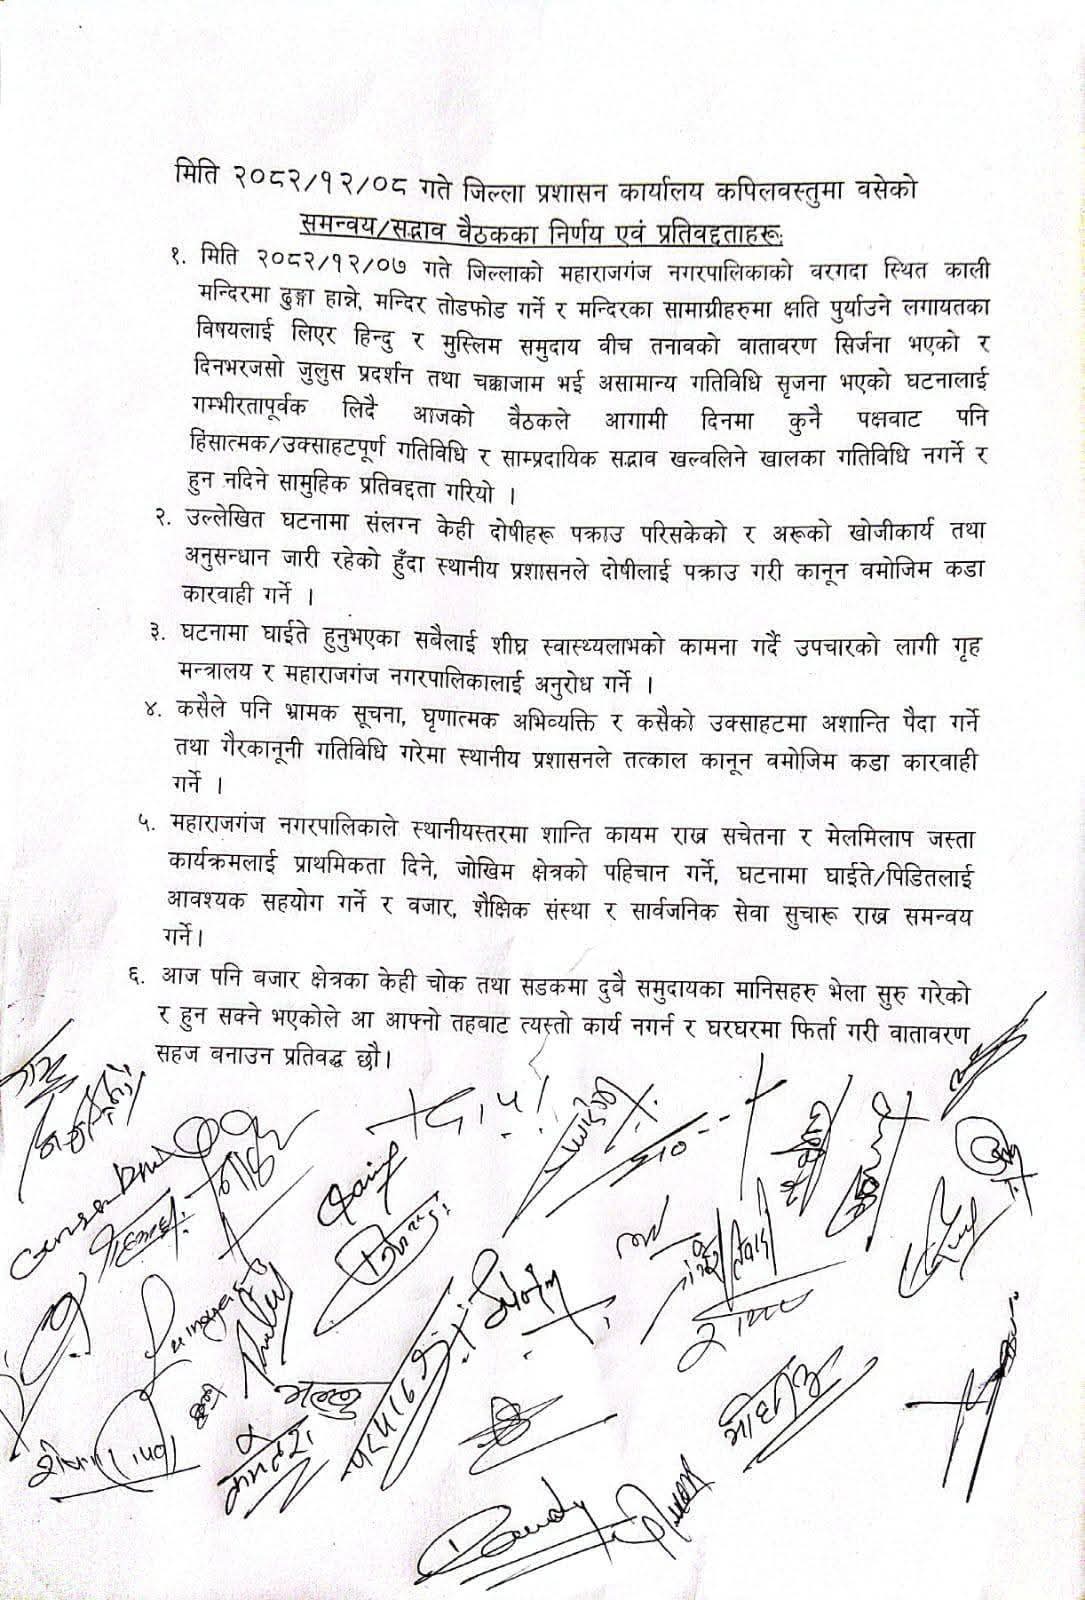 मिति २०८२/१२/०८ गते जिल्ला प्रशासन कार्यालय कपिलवस्तुमा वसेको
समन्वय/सद्भाव वैठकका निर्णय एवं प्रतिवद्दताहरू:
१. मिति २०८२/१२/०७ गते जिल्लाको महाराजगंज नगरपालिकाको वरगदा स्थित काली
मन्दिरमा ढुङ्गा हान्ने, मन्दिर तोडफोड गर्ने र मन्दिरका सामाग्रीहरुमा क्षति पुर्याउने लगायतका
विषयलाई लिएर हिन्दु र मुस्लिम समुदाय वीच तनावको वातावरण सिर्जना भएको र
दिनभरजसो जुलुस प्रदर्शन तथा चक्काजाम भई असामान्य गतिविधि सृजना भएको घटनालाई
गम्भीरतापूर्वक लिदै आजको वैठकले आगामी दिनमा कुनै पक्षवाट पनि
हिंसात्मक/उक्साहटपूर्ण गतिविधि र साम्प्रदायिक सद्भाव खल्वलिने खालका गतिविधि नगर्ने र
हुन नदिने सामुहिक प्रतिवद्दता गरियो ।
२. उल्लेखित घटनामा संलग्न केही दोषीहरू पक्राउ परिसकेको र अरूको खोजीकार्य तथा
अनुसन्धान जारी रहेको हुँदा स्थानीय प्रशासनले दोषीलाई पक्राउ गरी कानून वमोजिम कडा
कारवाही गर्ने ।
३. घटनामा घाईते हुनुभएका सबैलाई शीघ्र स्वास्थ्यलाभको कामना गर्दै उपचारको लागी गृह
मन्त्रालय र महाराजगंज नगरपालिकालाई अनुरोध गर्ने ।
४. कसैले पनि भ्रामक सूचना, घृणात्मक अभिव्यक्ति र कसैको उक्साहटमा अशान्ति पैदा गर्ने
तथा गैरकानूनी गतिविधि गरेमा स्थानीय प्रशासनले तत्काल कानून वमोजिम कडा कारवाही
गर्ने ।
५. महाराजगंज नगरपालिकाले स्थानीयस्तरमा शान्ति कायम राख्न सचेतना र मेलमिलाप जस्ता
कार्यक्रमलाई प्राथमिकता दिने, जोखिम क्षेत्रको पहिचान गर्ने, घटनामा घाईते/पिडितलाई
आवश्यक सहयोग गर्ने र वजार, शैक्षिक संस्था र सार्वजनिक सेवा सुचारू राख्न समन्वय
गर्ने।
६. आज पनि बजार क्षेत्रका केही चोक तथा सडकमा दुवै समुदायका मानिसहरु भेला सुरु गरेको
र हुन सक्ने भएकोले आ आफ्नो तहवाट त्यस्तो कार्य नगर्न र घरघरमा फिर्ता गरी वातावरण
सहज वनाउन प्रतिवद्ध छौ।